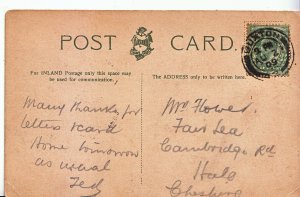 POST CARD.
For INLAND Postage only this space may
be used for communication.
The ADDRESS only to be written here.
Many thanks for
letters & card
Home tomorrow
as usual
Ted
Mrs Flower
Fair Lea
Cambridge Rd
Hale
Cheshire